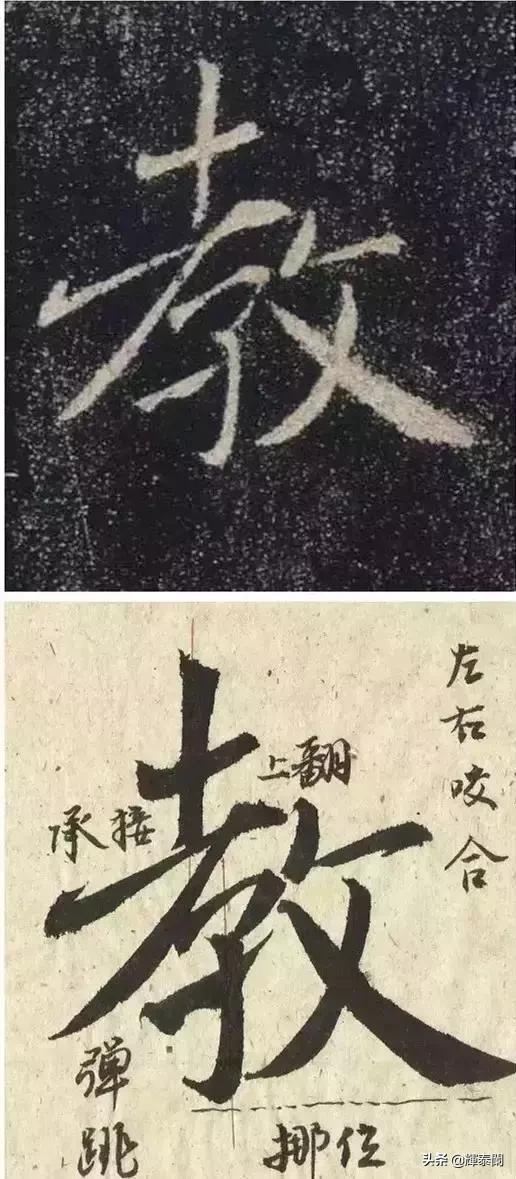 教
教
左右咬合
上翻
承接
弹跳
挪位
头条 @輝泰閣